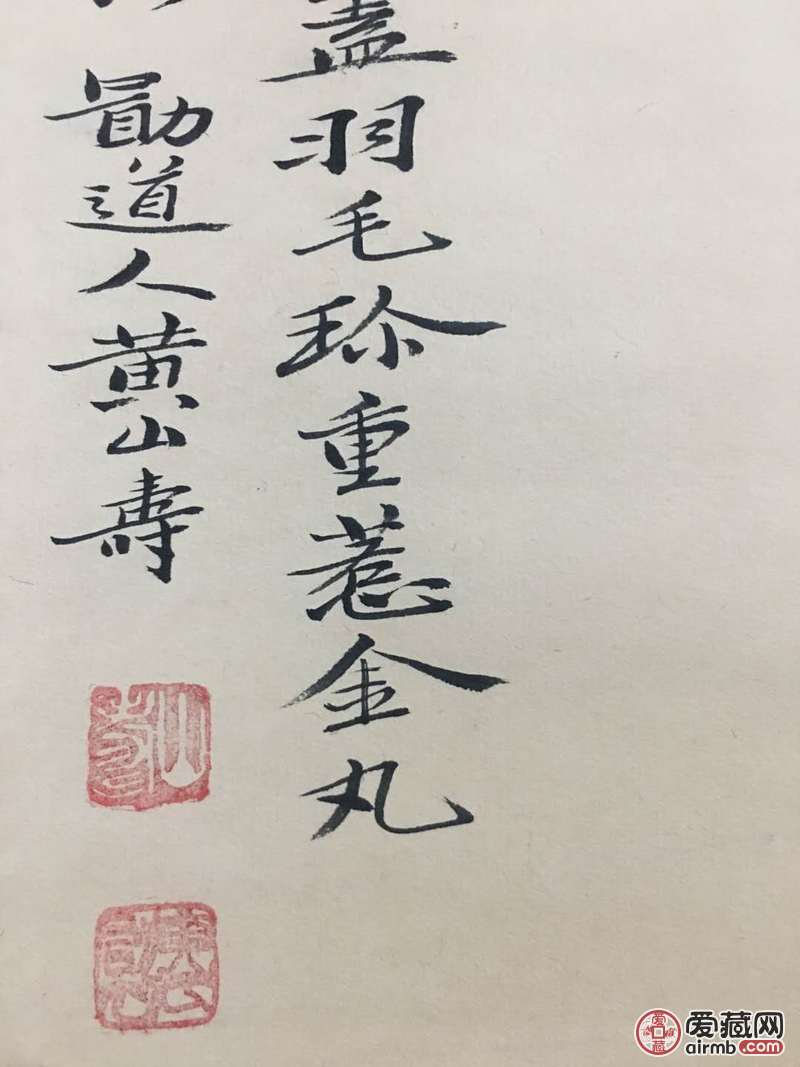 盡羽毛珎重惹金丸
勖道人黄山壽
山壽
爱藏网
airmb.com